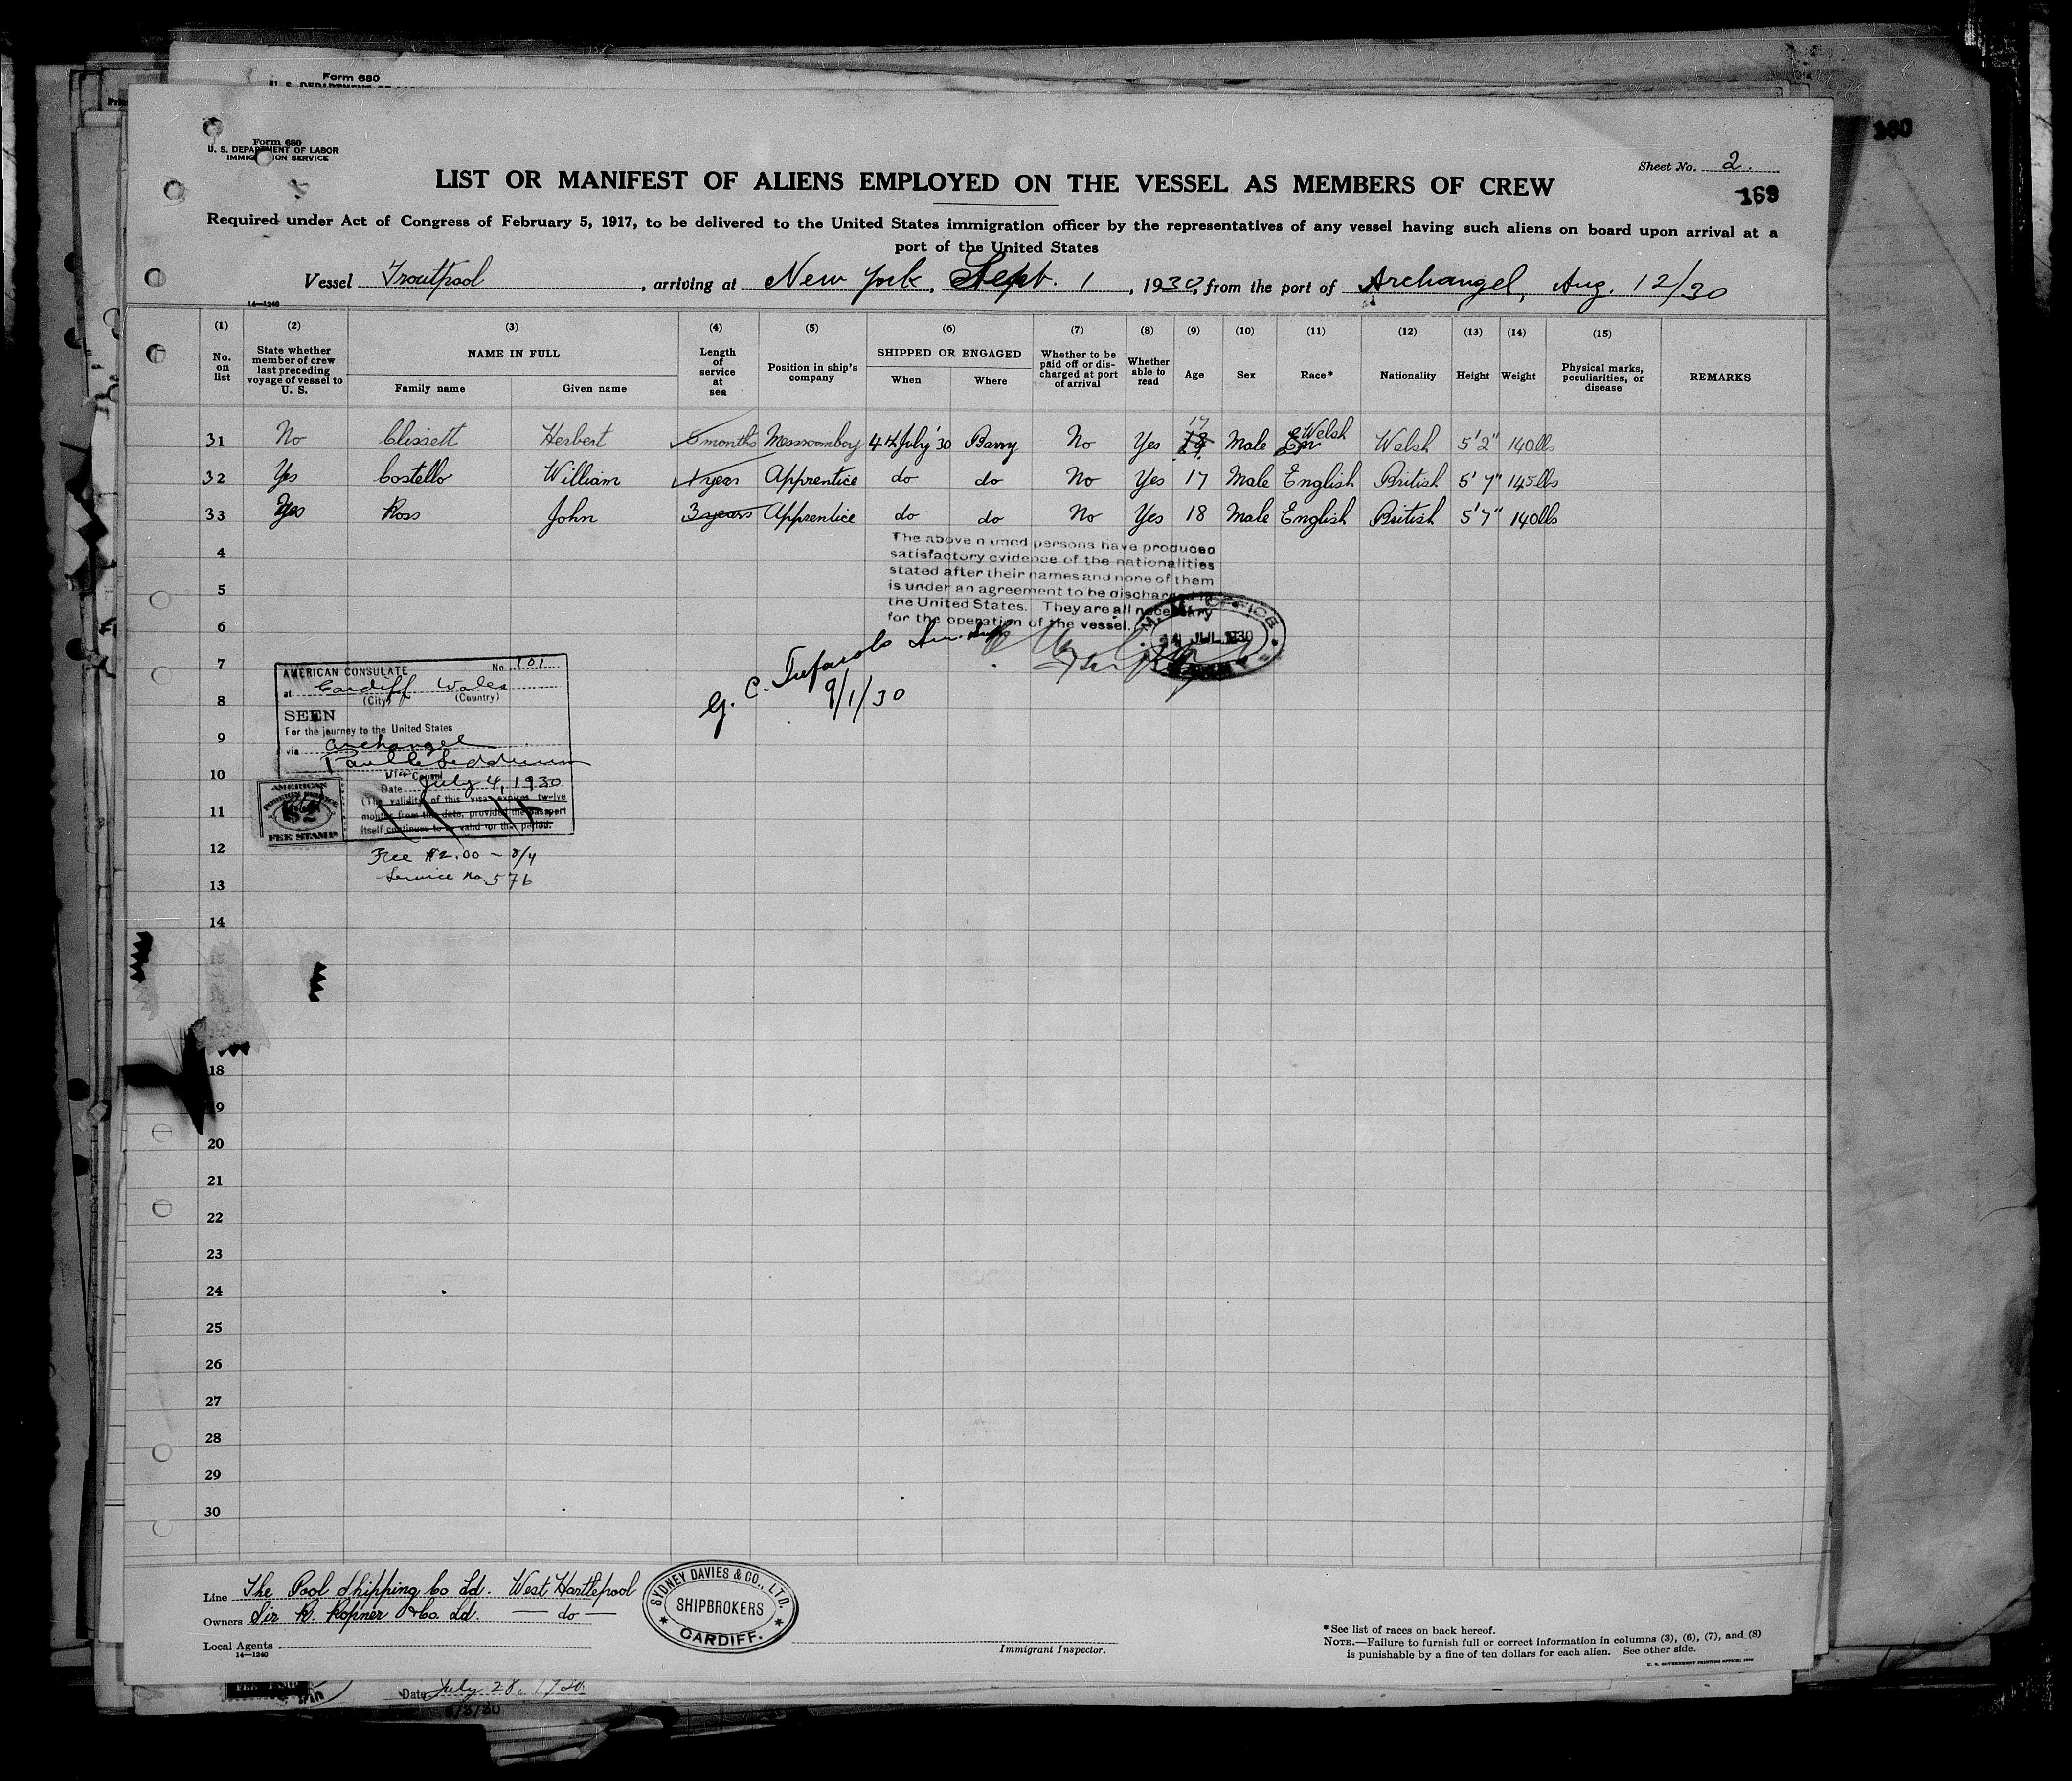 Form 680
160
Form 680
U. S. DEPARTMENT OF LABOR
IMMIGRATION SERVICE
Sheet No. 2.
LIST OR MANIFEST OF ALIENS EMPLOYED ON THE VESSEL AS MEMBERS OF CREW
169
Required under Act of Congress of February 5, 1917, to be delivered to the United States immigration officer by the representatives of any vessel having such aliens on board upon arrival at a
port of the United States
Vessel Troutpool, arriving at New York, Sept. 1, 1930, from the port of Archangel, Aug. 12/30
14—1240
(1) (2) (3) (4) (5) (6) (7) (8) (9) (10) (11) (12) (13) (14) (15)
No. on list State whether member of crew last preceding voyage of vessel to U. S. NAME IN FULL Family name Given name Length of service at sea Position in ship's company SHIPPED OR ENGAGED When Where Whether to be paid off or discharged at port of arrival Whether able to read Age Sex Race* Nationality Height Weight Physical marks, peculiarities, or disease REMARKS
31 No Clissett Herbert 5 months Messroomboy 4th July '30 Barry No Yes 17 Male Welsh Welsh 5'2" 140lbs
32 Yes Costello William 1 year Apprentice do do No Yes 17 Male English British 5'7" 145lbs
33 Yes Ross John 3 years Apprentice do do No Yes 18 Male English British 5'7" 140lbs
The above named persons have produced
satisfactory evidence of the nationalities
stated after their names and none of them
is under an agreement to be discharged in
the United States. They are all necessary
for the operation of the vessel.
M. M. OFFICE
4 JUL 1930
G. C.
9/1/30
4
5
6
7
8
9
10
11
12
13
14
18
19
20
21
22
23
24
25
26
27
28
29
30
AMERICAN CONSULATE No. 101
at Cardiff Wales
(City) (Country)
SEEN
For the journey to the United States
via Archangel
Vice Consul
Date July 4, 1930
(The validity of this visa expires twelve
months from this date, provided the passport
itself continues to be valid for that period.
AMERICAN
FOREIGN SERVICE
$2
FEE STAMP
Fee $2.00 – 8/4
Service No. 576
Line The Pool Shipping Co Ld. West Hartlepool
Owners Sir R. Ropner & Co. Ld. — do —
Local Agents
14—1240
SYDNEY DAVIES & CO., LTD.
SHIPBROKERS
CARDIFF.
Immigrant Inspector.
*See list of races on back hereof.
NOTE.—Failure to furnish full or correct information in columns (3), (6), (7), and (8)
is punishable by a fine of ten dollars for each alien. See other side.
Date July 28, 1930